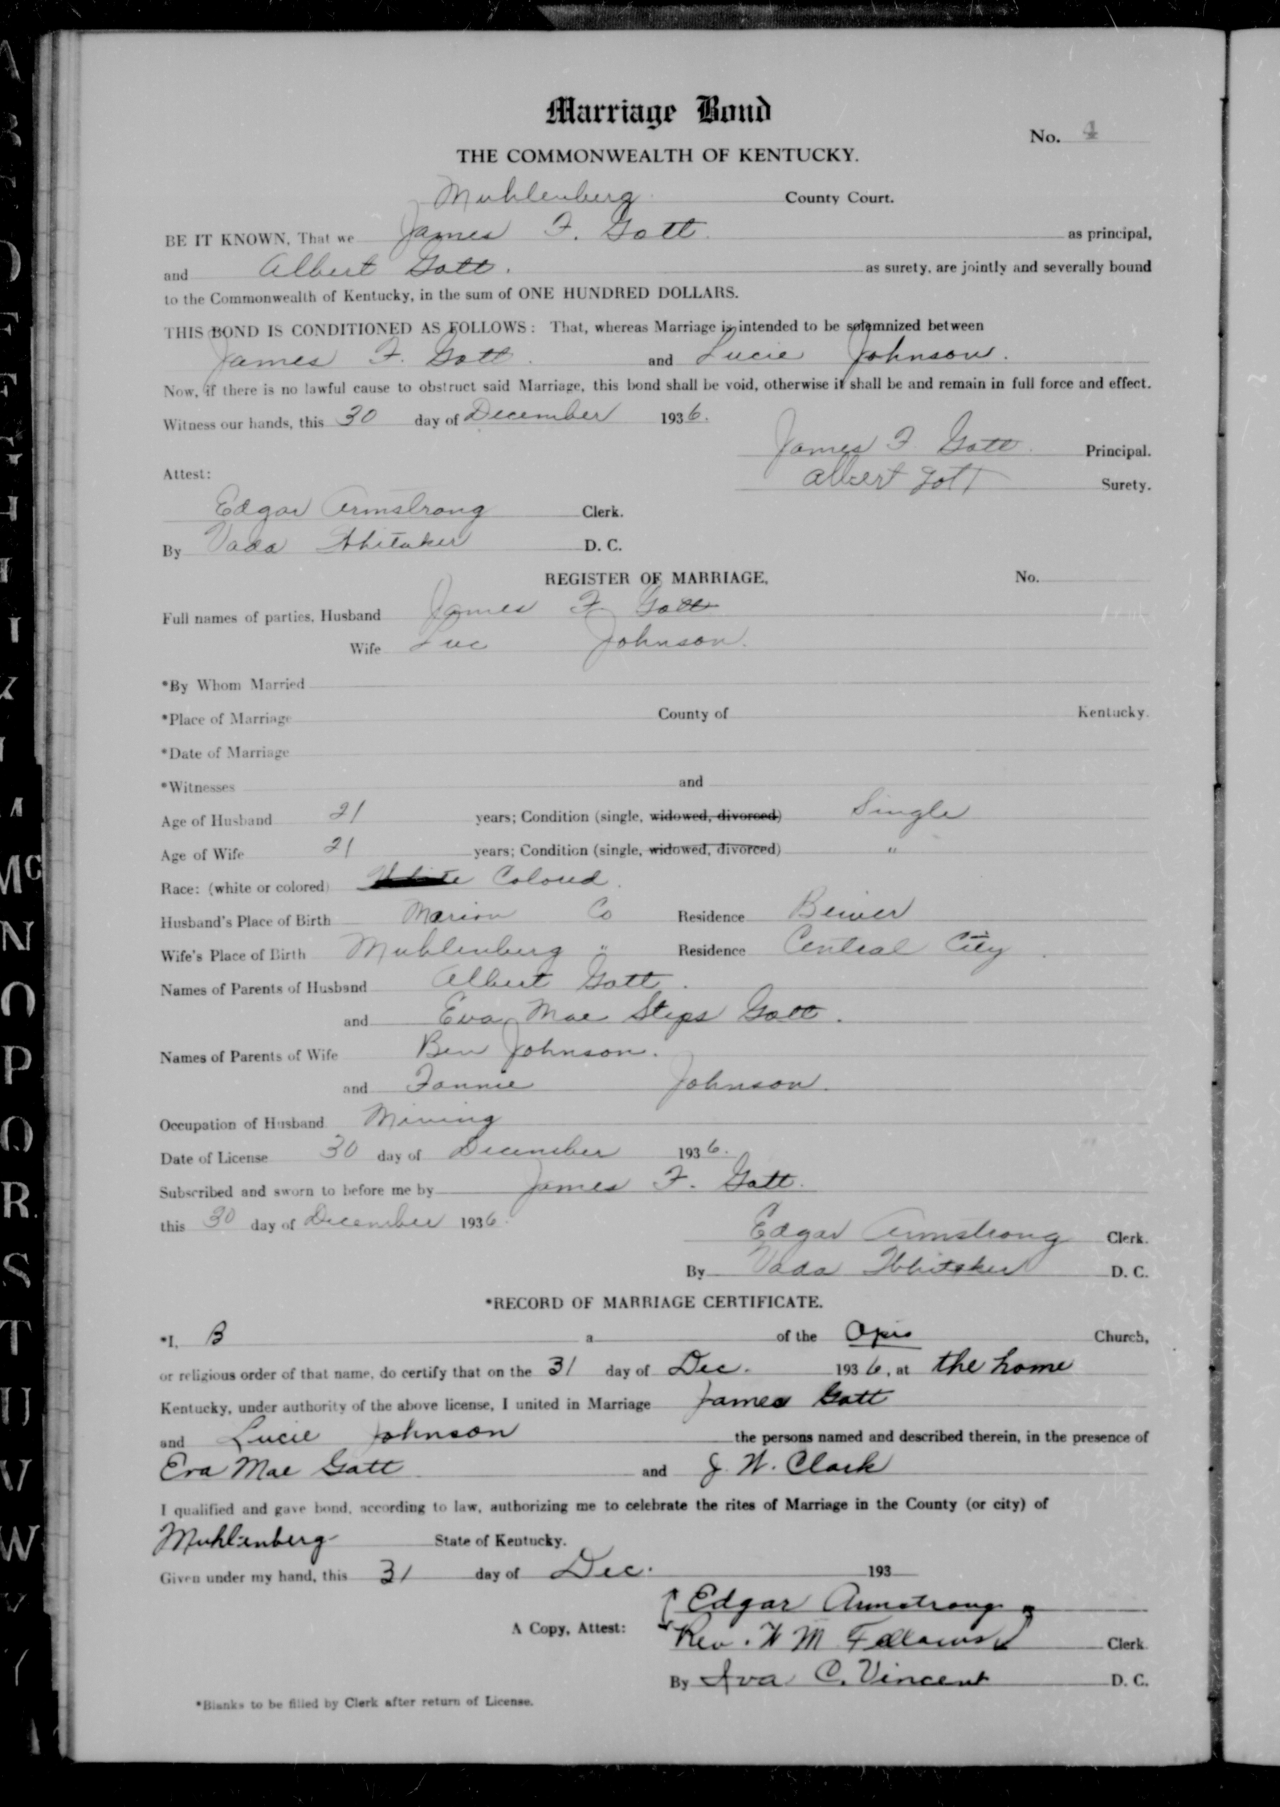 Marriage Bond
No. 4
THE COMMONWEALTH OF KENTUCKY.
Muhlenberg County Court.
BE IT KNOWN, That we James F. Gott as principal,
and Albert Gott. as surety, are jointly and severally bound
to the Commonwealth of Kentucky, in the sum of ONE HUNDRED DOLLARS.
THIS BOND IS CONDITIONED AS FOLLOWS: That, whereas Marriage is intended to be solemnized between
James F. Gott and Lucie Johnson.
Now, if there is no lawful cause to obstruct said Marriage, this bond shall be void, otherwise it shall be and remain in full force and effect.
Witness our hands, this 30 day of December 1936.
James F Gott Principal.
Attest:
Albert Gott Surety.
Edgar Armstrong Clerk.
By Vada Whitaker D. C.
REGISTER OF MARRIAGE, No.
Full names of parties, Husband James F Gott
Wife Luc Johnson.
*By Whom Married
*Place of Marriage County of Kentucky.
*Date of Marriage
*Witnesses and
Age of Husband 21 years; Condition (single, widowed, divorced) Single
Age of Wife 21 years; Condition (single, widowed, divorced) "
Race: (white or colored) White Colored.
Husband's Place of Birth Marion Co Residence
Wife's Place of Birth Muhlenberg " Residence Central City
Names of Parents of Husband Albert Gott.
and Eva Mae Steps Gott.
Names of Parents of Wife Ben Johnson.
and Fannie Johnson.
Occupation of Husband Mining
Date of License 30 day of December 1936.
Subscribed and sworn to before me by James F. Gott.
this 30 day of December 1936.
Edgar Armstrong Clerk.
By Vada Whitaker D. C.
*RECORD OF MARRIAGE CERTIFICATE.
*I, B a of the Church,
or religious order of that name, do certify that on the 31 day of Dec. 1936, at the home
Kentucky, under authority of the above license, I united in Marriage James Gott
and Lucie Johnson the persons named and described therein, in the presence of
Eva Mae Gott and J. W. Clark
I qualified and gave bond, according to law, authorizing me to celebrate the rites of Marriage in the County (or city) of
Muhlenberg State of Kentucky.
Given under my hand, this 31 day of Dec. 193
Edgar Armstrong
A Copy, Attest:
Rev. W M Fellows Clerk
By Iva C. Vincent D. C.
*Blanks to be filled by Clerk after return of License.